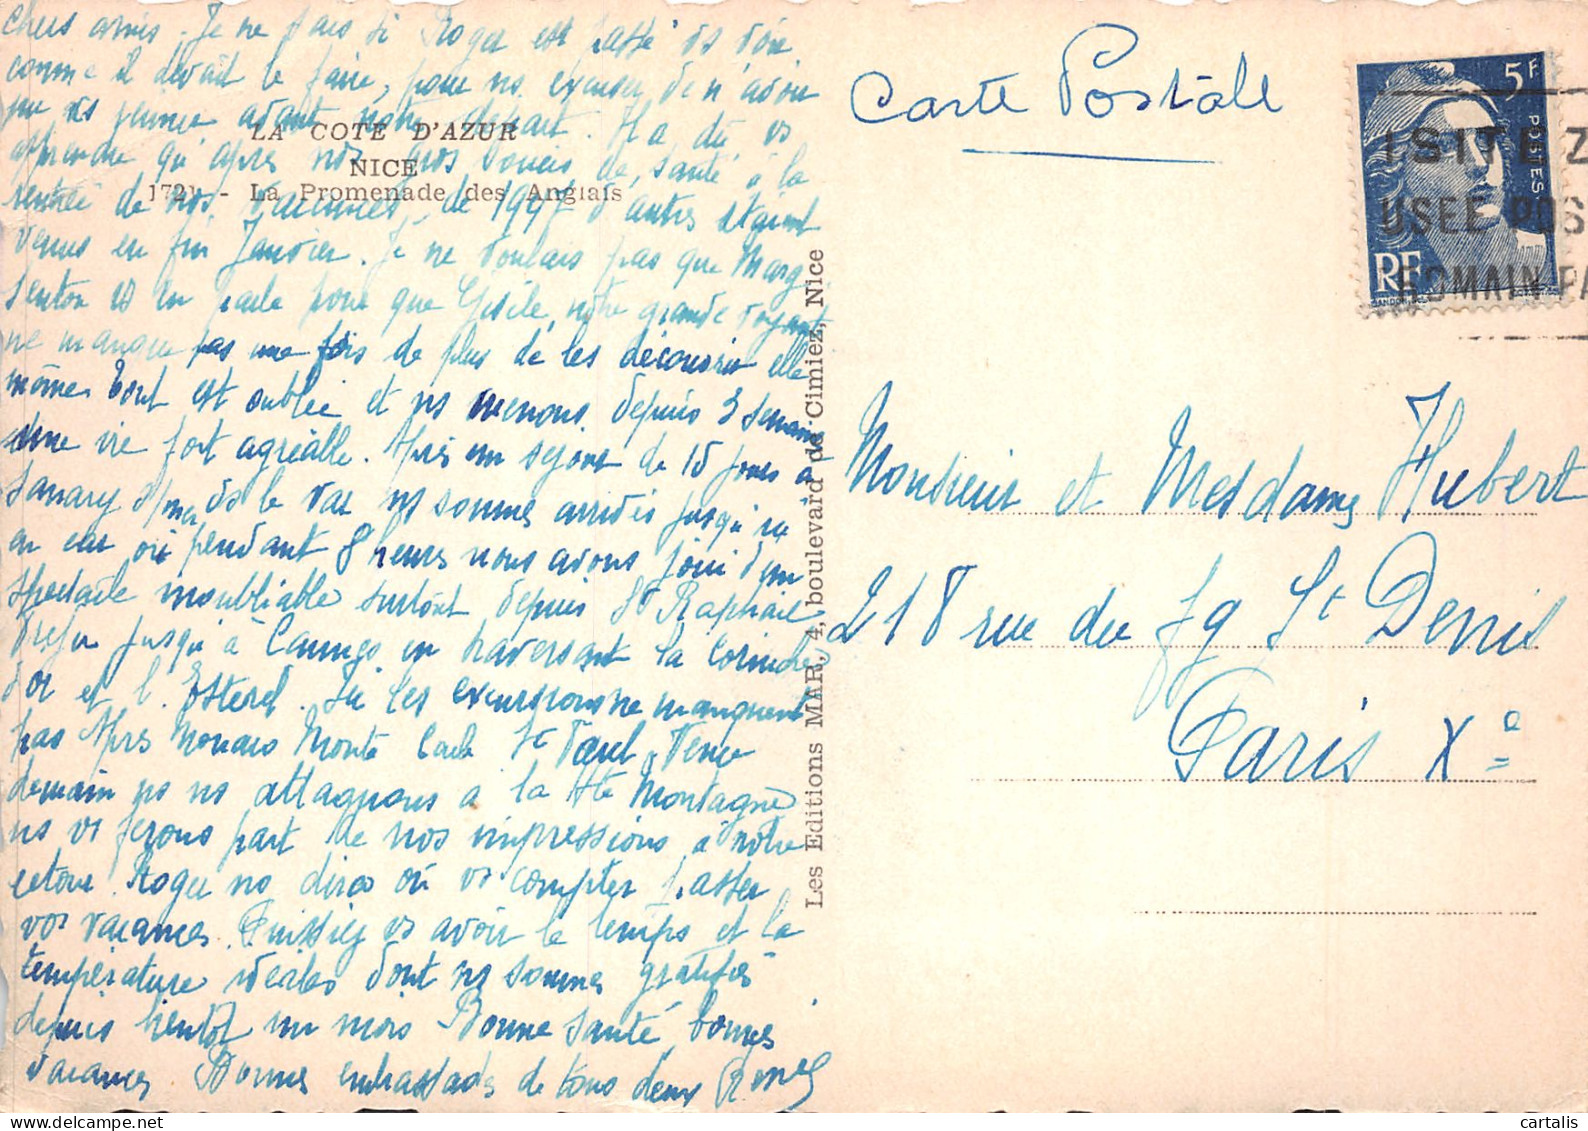 chers amis, Je ne sais si Roger est passé vs voir
comme il devait le faire, pour ns excuser de n'avoir
pu vs prévenir avant notre départ. Il a dû vs
apprendre qu'après nos gros soucis de santé à la
rentrée de nos vacances de 1947 d'autres étaient
venus en fin Janvier. Je ne voulais pas que Marg
Senton vs en parle pour que Gisèle, notre grande
ne manque pas une fois de plus de les découvrir elle
même. Tout est oublié et ns menons depuis 3 semaines
une vie fort agréable. Après un séjour de 15 jours à
Sanary s/mer ds le Var ns sommes arrivés jusqu'ici
en car où pendant 8 heures nous avons joui d'un
spectacle inoubliable surtout depuis St Raphaël
Fréjus jusqu'à Cannes en traversant la Corniche
d'or et l'Esterel. Ici les excursions ne manquent
pas Après Monaco Monte Carlo St Paul Vence
demain ns ns attaquons à la Hte Montagne
ns vs ferons part de nos impressions à notre
retour. Roger ns dira où vs comptez passer
vos vacances. Puissiez vs avoir le temps et la
température dont ns sommes gratifiés
depuis bientôt un mois Bonne santé, bonnes
vacances Bonnes embrassades de tous deux
LA COTE D'AZUR
NICE
1721 - La Promenade des Anglais
Les Editions MAR, 4, boulevard de Cimiez, Nice
Carte Postale
5F
POSTES
RF
ISITEZ
USEE POS
ROMAIN PA
Monsieur et Mesdames Hubert
218 rue du fg St Denis
Paris Xe
cartalis